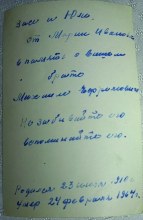 Зисе и Юли.
от Марии Ивановны
в память о Вашем
брате
Михаиле
Не забывайте его
вспоминайте его.
Родился 23 июля 1910 г.
Умер 24 февраля 1967 г.